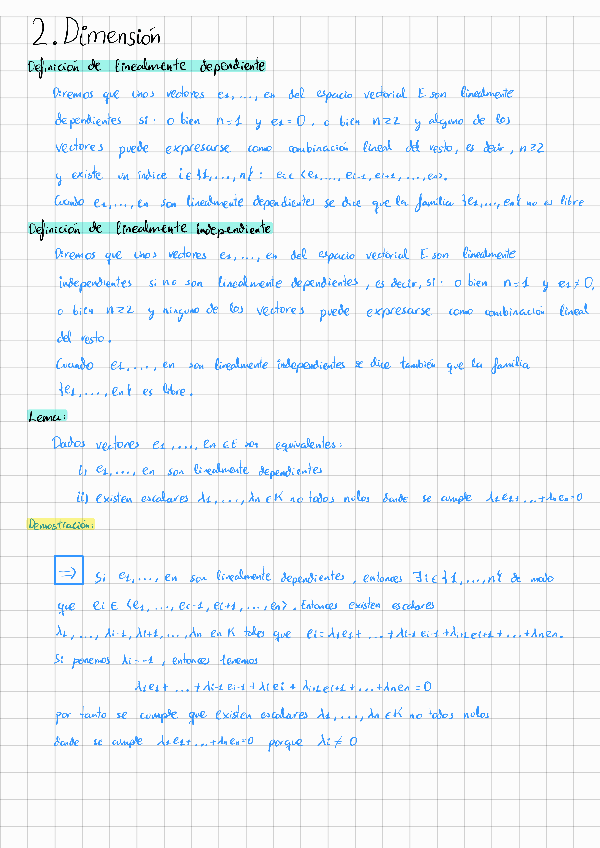 2. Dimensión
Definición de linealmente dependiente
Diremos que unos vectores e1, ..., en del espacio vectorial E son linealmente
dependientes si: o bien n=1 y e1=0, o bien n≥2 y alguno de los
vectores puede expresarse como combinación lineal del resto, es decir, n≥2
y existe un índice i∈{1,...,n} : ei∈<e1,...,ei-1,ei+1,...,en>.
Cuando e1,...,en son linealmente dependientes se dice que la familia {e1,...,en} no es libre
Definición de linealmente independiente
Diremos que unos vectores e1,...,en del espacio vectorial E son linealmente
independientes si no son linealmente dependientes, es decir, si: o bien n=1 y e1≠0,
o bien n≥2 y ninguno de los vectores puede expresarse como combinación lineal
del resto.
Cuando e1,...,en son linealmente independientes se dice también que la familia
{e1,...,en} es libre.
Lema:
Dados vectores e1,...,en ∈E son equivalentes:
i) e1,...,en son linealmente dependientes
ii) existen escalares λ1,...,λn∈K no todos nulos donde se cumple λ1e1+...+λnen=0
Demostración:
=> Si e1,...,en son linealmente dependientes, entonces ∃i∈{1,...,n} de modo
que ei∈<e1,...,ei-1,ei+1,...,en>. Entonces existen escalares
λ1,...,λi-1,λi+1,...,λn en K tales que ei=λ1e1+...+λi-1ei-1+λi+1ei+1+...+λnen.
Si ponemos λi=-1, entonces tenemos
λ1e1+...+λi-1ei-1+λiei+λi+1ei+1+...+λnen=0
por tanto se cumple que existen escalares λ1,...,λn∈K no todos nulos
donde se cumple λ1e1+...+λnen=0 porque λi≠0